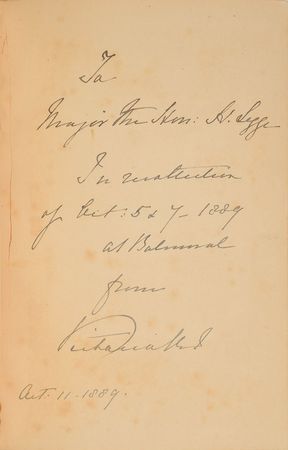 To
Major the Hon: H. Legge
In recollection
of Oct: 5 & 7 - 1889
at Balmoral
from
Victoria R I
Oct. 11. 1889.